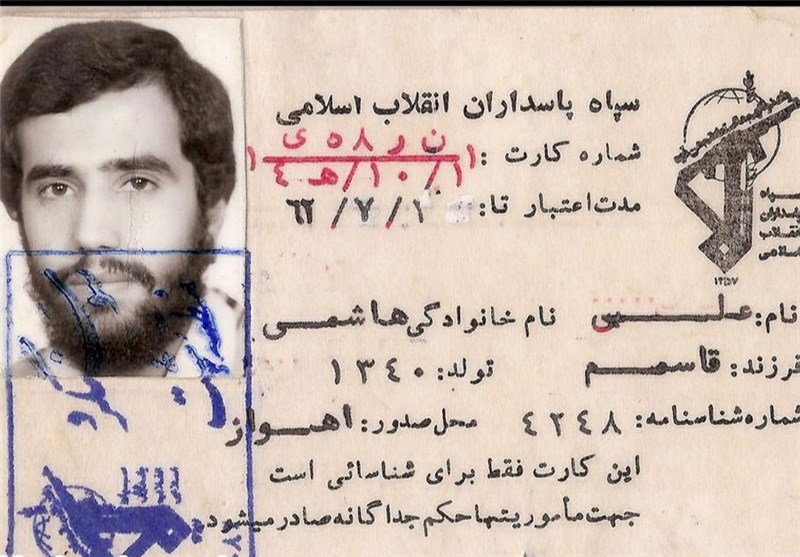 سپاه پاسداران انقلاب اسلامی
شماره کارت : ن ر ۵۸ ی
۱/۱۰/هـ ٤
مدت اعتبار تا: ۱/۷/٦٢
سپاه
پاسداران
انقلاب
اسلامی
۱۳۵۷
نام: علی نام خانوادگی هاشمی
فرزند: قاسم تولد: ۱۳٤۰
شماره شناسنامه: ٤٢٤٨ محل صدور: اهواز
این کارت فقط برای شناسائی است
جهت مأموریتها حکم جداگانه صادر میشود.